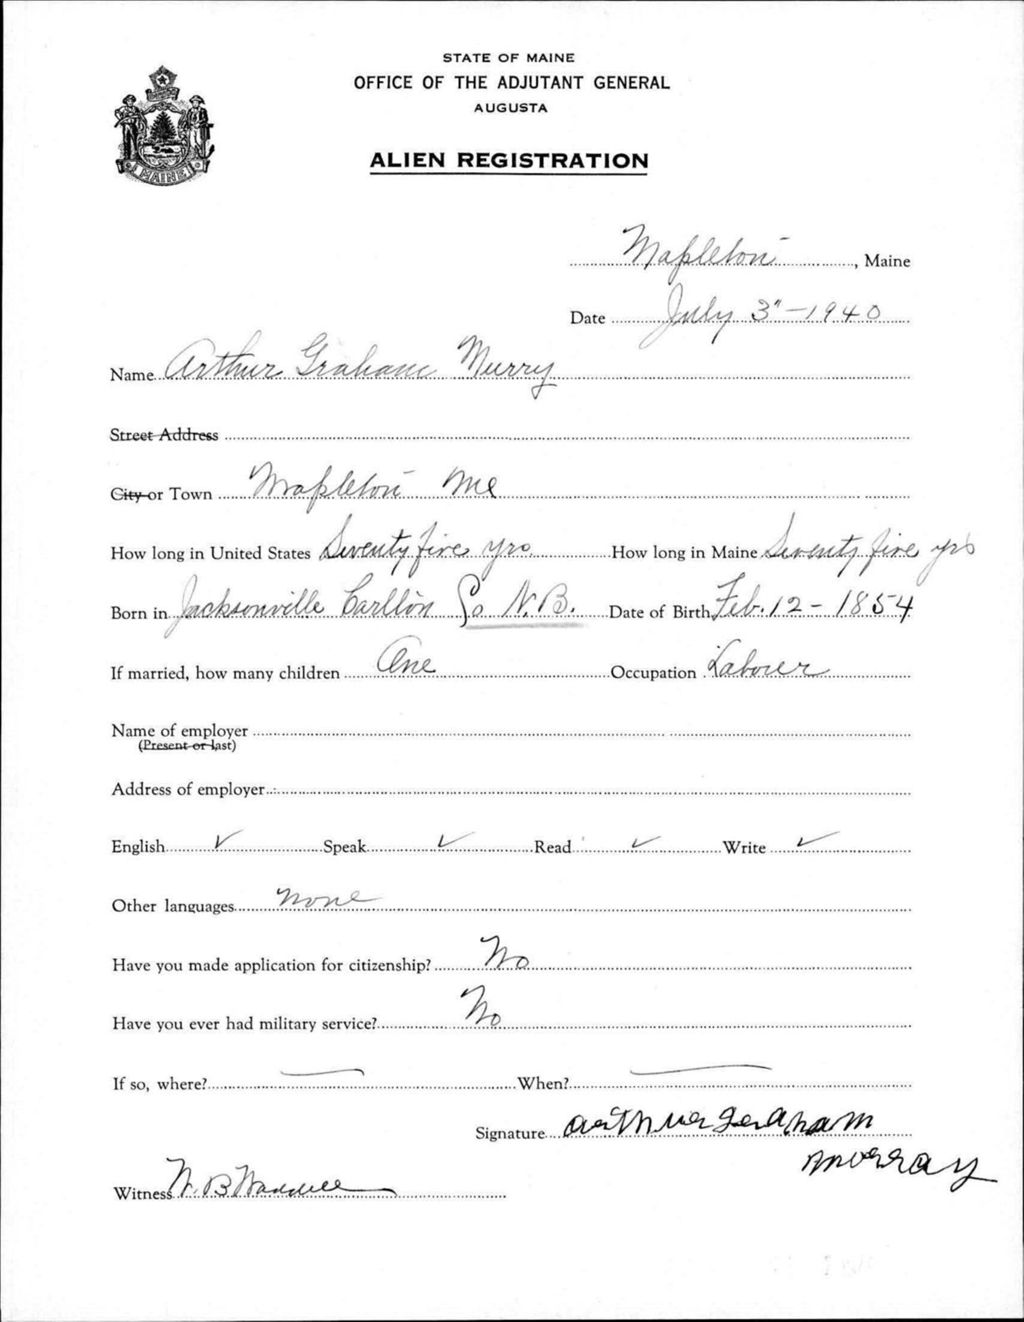 STATE OF MAINE
OFFICE OF THE ADJUTANT GENERAL
AUGUSTA
ALIEN REGISTRATION
MAINE
Mapleton, Maine
Date July 3" - 1940
Name Arthur Graham Murry
Street Address
City or Town Mapleton Me
How long in United States Seventy five yrs How long in Maine Seventy five yrs
Born in Jacksonville Carlton Co N.B. Date of Birth Feb. 12 - 1854
If married, how many children One Occupation Laborer
Name of employer
(Present or last)
Address of employer
English ✓ Speak ✓ Read ✓ Write ✓
Other languages None
Have you made application for citizenship? No
Have you ever had military service? No
If so, where? — When? —
Signature Arthur Graham
Murray
Witness W. B. Waddell